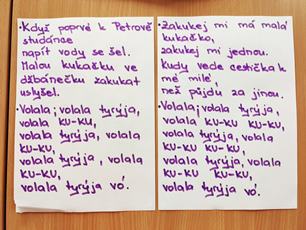 • Když poprvé k Petrově
studánce
napít vody se šel.
Malou kukačku ve
džbánečku zakukat
uslyšel.
• Volala, volala tyryja,
volala ku-ku,
volala tyryja, volala
ku-ku,
volala tyryja, volala
ku-ku,
volala tyryja vó.
• Zakukej mi má malá
kukačko,
zakukej mi jednou.
Kudy vede cestička k
mé milé,
než půjdu za jinou.
• Volala, volala tyryja,
volala ku-ku,
volala tyryja, volala
ku-ku,
volala tyryja, volala
ku-ku,
volala tyryja vó.